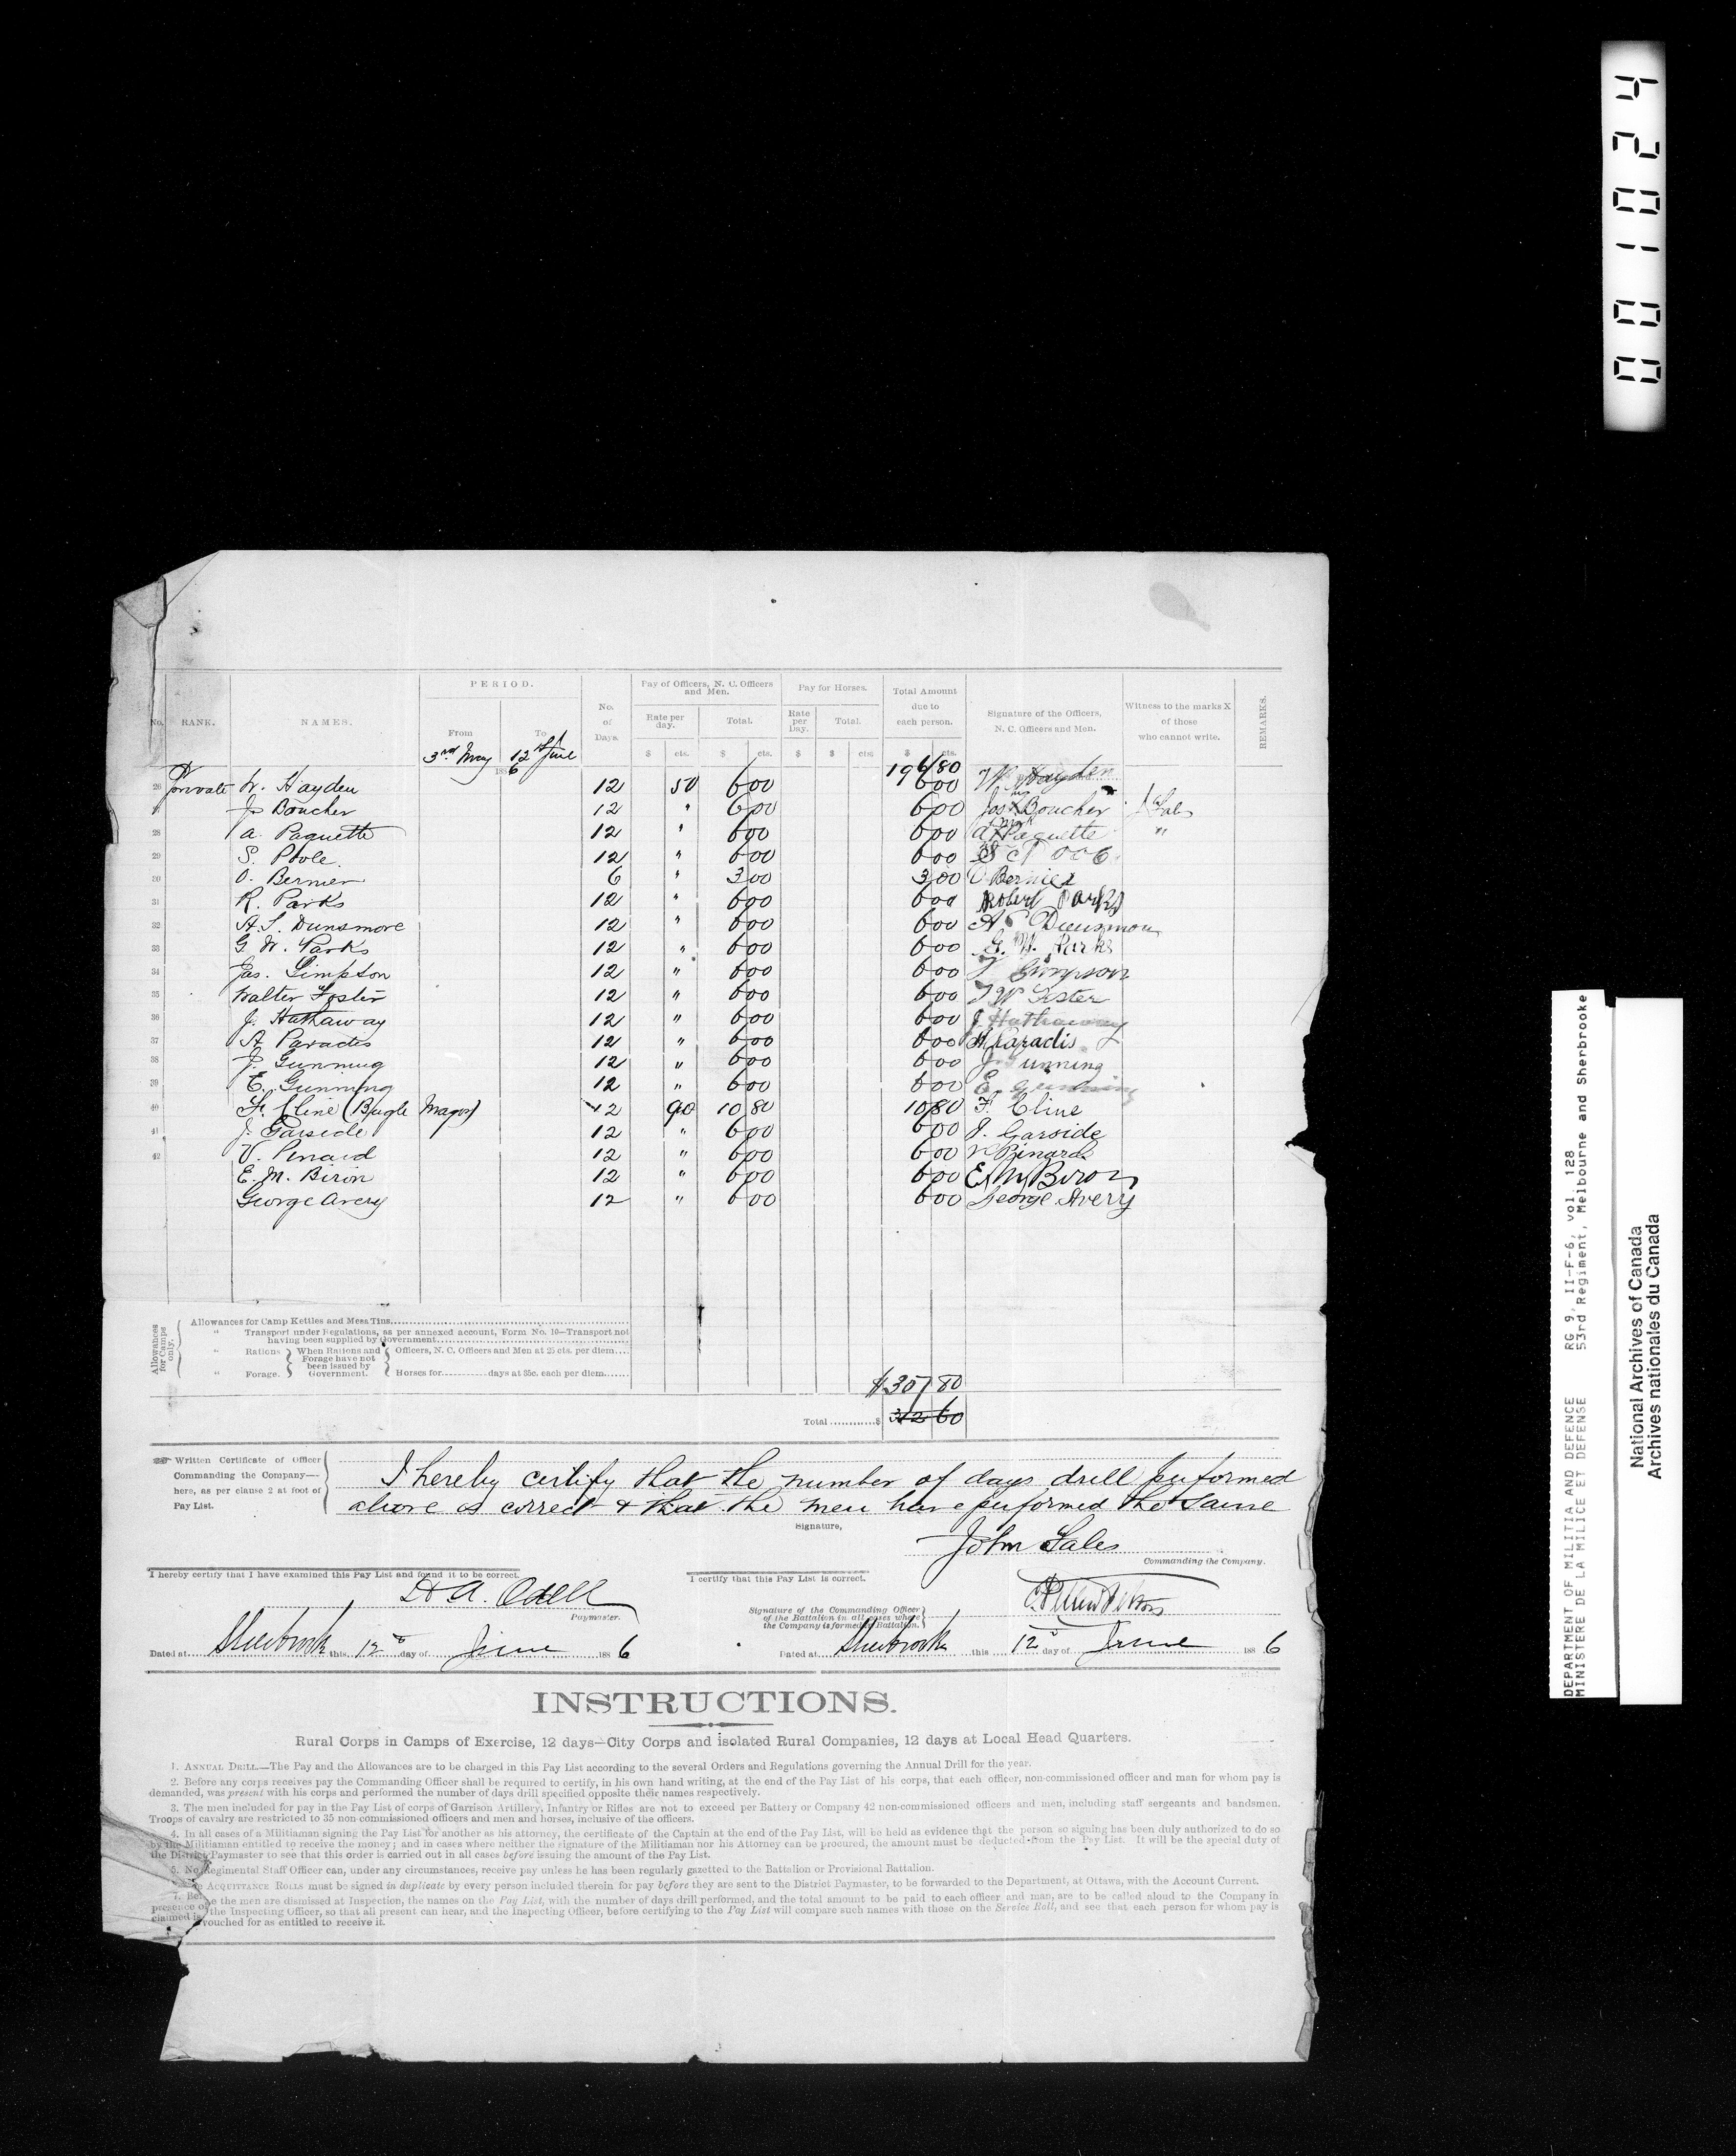 001024
PERIOD.
Pay of Officers, N. C. Officers and Men.
Pay for Horses.
Total Amount due to each person.
No. RANK. NAMES. From To No. of Days. Rate per day. Total. Rate per Day. Total. Signature of the Officers, N. C. Officers and Men. Witness to the marks X of those who cannot write. REMARKS.
$ cts. $ cts. $ $ cts $ cts.
3rd May 12th June
1886
196 80
26 Private W. Hayden 12 50 6 00 6 00 W Hayden
J Boucher 12 " 6 00 6 00 Jos his X Boucher J Sales
28 A. Paquette 12 " 6 00 6 00 A X mark Paquette "
29 S. Poole. 12 " 6 00 6 00 S Poole
30 O. Bernier 6 " 3 00 3 00 O Bernier
31 R. Parks 12 " 6 00 6 00 Robert Parks
32 A. S. Dunsmore 12 " 6 00 6 00 A S Dunsmore
33 G. W. Parks 12 " 6 00 6 00 G. W. Parks
34 Jas. Simpson 12 " 6 00 6 00 J Simpson
35 Walter Foster 12 " 6 00 6 00 W Foster
36 J. Hathaway 12 " 6 00 6 00 J Hathaway
37 A Paradis 12 " 6 00 6 00 A Paradis
38 J. Gunning 12 " 6 00 6 00 J Gunning
39 E. Gunning 12 " 6 00 6 00 E Gunning
40 F. Cline (Bugle Major) 12 90 10 80 10 80 F. Cline
41 J. Garside 12 " 6 00 6 00 J. Garside
42 V. Pinard 12 " 6 00 6 00 V Pinard
E. M. Biron 12 " 6 00 6 00 E. M. Biron
George Avery 12 " 6 00 6 00 George Avery
Allowances for Camps only.
Allowances for Camp Kettles and Mess Tins
" Transport under Regulations, as per annexed account, Form No. 10—Transport not having been supplied by Government
" Rations When Rations and Forage have not been issued by Government. Officers, N. C. Officers and Men at 25 cts. per diem....
" Forage. Horses for............days at 35c. each per diem......
$307 80
Total ............$ 312 60
Written Certificate of Officer Commanding the Company—here, as per clause 2 at foot of Pay List.
I hereby certify that the number of days drill performed
above is correct & that the men have performed the same
Signature,
John Sales
Commanding the Company.
I hereby certify that I have examined this Pay List and found it to be correct.
I certify that this Pay List is correct.
Paymaster.
Signature of the Commanding Officer of the Battalion in all cases where the Company is formed in Battalion.
Dated at Sherbrooke this 12th day of June 1886
Dated at Sherbrooke this 12th day of June 1886
INSTRUCTIONS.
Rural Corps in Camps of Exercise, 12 days—City Corps and isolated Rural Companies, 12 days at Local Head Quarters.
1. ANNUAL DRILL.—The Pay and the Allowances are to be charged in this Pay List according to the several Orders and Regulations governing the Annual Drill for the year.
2. Before any corps receives pay the Commanding Officer shall be required to certify, in his own hand writing, at the end of the Pay List of his corps, that each officer, non-commissioned officer and man for whom pay is
demanded, was present with his corps and performed the number of days drill specified opposite their names respectively.
3. The men included for pay in the Pay List of corps of Garrison Artillery, Infantry or Rifles are not to exceed per Battery or Company 42 non-commissioned officers and men, including staff sergeants and bandsmen.
Troops of cavalry are restricted to 35 non-commissioned officers and men and horses, inclusive of the officers.
4. In all cases of a Militiaman signing the Pay List for another as his attorney, the certificate of the Captain at the end of the Pay List, will be held as evidence that the person so signing has been duly authorized to do so
by the Militiaman entitled to receive the money; and in cases where neither the signature of the Militiaman nor his Attorney can be procured, the amount must be deducted from the Pay List. It will be the special duty of
the District Paymaster to see that this order is carried out in all cases before issuing the amount of the Pay List.
5. No Regimental Staff Officer can, under any circumstances, receive pay unless he has been regularly gazetted to the Battalion or Provisional Battalion.
ACQUITTANCE ROLLS must be signed in duplicate by every person included therein for pay before they are sent to the District Paymaster, to be forwarded to the Department, at Ottawa, with the Account Current.
7. Before the men are dismissed at Inspection, the names on the Pay List, with the number of days drill performed, and the total amount to be paid to each officer and man, are to be called aloud to the Company in
presence of the Inspecting Officer, so that all present can hear, and the Inspecting Officer, before certifying to the Pay List will compare such names with those on the Service Roll, and see that each person for whom pay is
claimed is vouched for as entitled to receive it.
DEPARTMENT OF MILITIA AND DEFENCE RG 9, II-F-6, vol 128
MINISTERE DE LA MILICE ET DEFENSE 53rd Regiment, Melbourne and Sherbrooke
National Archives of Canada
Archives nationales du Canada